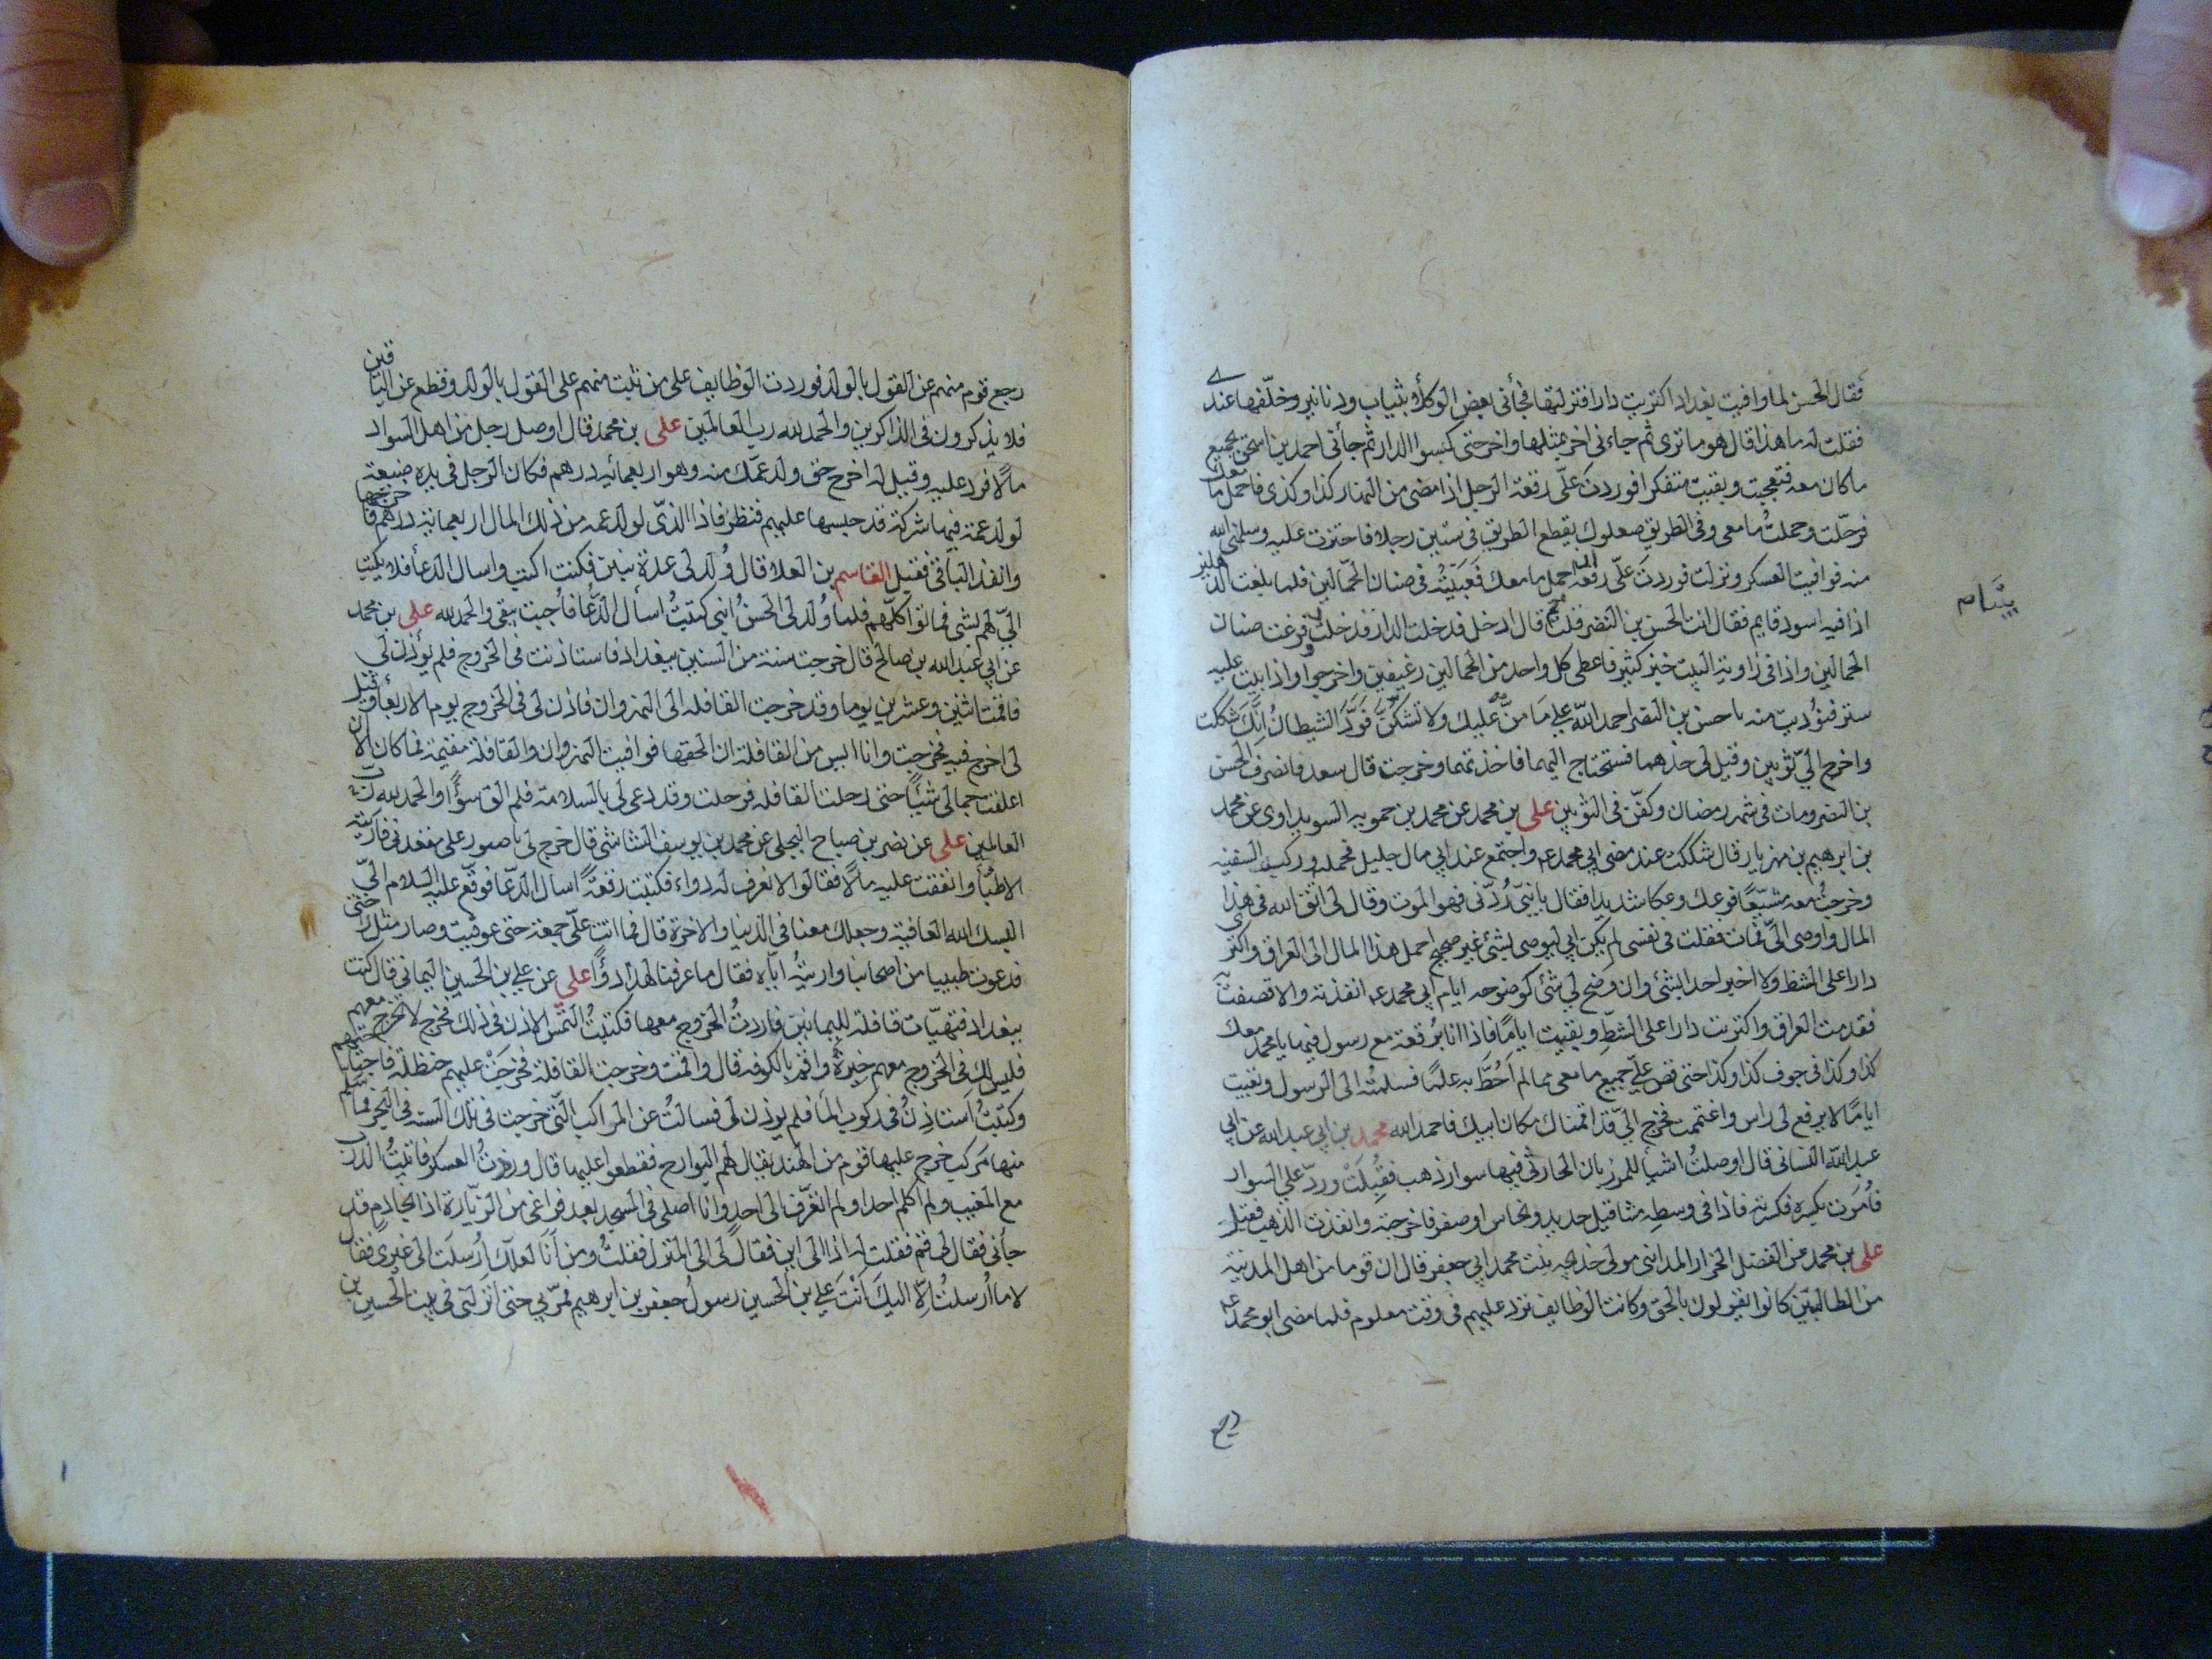 فقال الحسن لما وافيت بغداد اكتريت دارا فنزلتها فجأنى بعض الوكلأ و بثياب ودنانير وخلّفها عندے
فقلت له ما هذا قال هو ما ترى ثم جاءنى اخر بمثلها واخر حتى كبسوا الدار ثم جأنى احمد بن اسحق بجميع
ما كان معه فتعجبت وبقيت متفكرا فوردت علىّ رقعة الرجل اذا مضى من النهار كذا وكذى فاحمل ما معك
فرحلت وحملتُ ما معى وفى الطريق صعلوك يقطع الطريق فى ستين رجلا فاجتزت عليه وسلمنى الله
منه فوافيت العسكر ونزلت فوردت علىّ رقعة ان احمل ما معك فعبّيتُه فى صنان الحمّالين فلما بلغت الدهليز
اذا فيه اسود قايم فقال انت الحسن بن النضر قلت نعم قال ادخل فدخلت الدار فدخلت بيتا وفرغت صنان
الحمالين واذا فى زاوية البيت خبز كثير فاعطى كل واحد من الحمالين رغيفين واخرجوا واذا بيت عليه
ستر فنُوديت منه يا حسن بن النضر احمد الله على مَا مَنَّ به عليك ولا تشكنّ فودّ الشيطانُ انّك شككت
واخرج الىّ ثوبين وقيل لى خذهما فستحتاج اليهما فاخذتهما وخرجت قال سعد فانصرف الحسن
بن النضر ومات فى شهر رمضان وكفّن فى الثوبين على بن محمد عن محمد بن حمويه السويداوى عن محمد
بن ابرهيم بن مهزيار قال شككت عند مضى ابى محمد عم واجتمع عند ابى مال جليل فحمله وركب السفينه
وخرجتُ معه مشيّعًا فوعك وعكا شديدا فقال يا بنىّ رُدّنى فهو الموت وقال لى اتّق الله فى هذا
المال واوصى الىّ فمات فقلت فى نفسى لم يكن ابى ليوصى بشئ غير صحيح احمل هذا المال الى العراق واكترى
دارا على الشط ولا اخبر احدا بشئ وان وضح لى شئ كوضوحه ايام ابى محمد عم انفذته والا قصفت به
فقدمت العراق واكتريت دارا على الشطّ وبقيت ايامًا فاذا انا برُقعة مع رسول فيها يا محمد معك
كذا وكذا فى جوف كذا وكذا حتى قص علىّ جميع ما معى مما لم اُحطّ به علمًا فسلمتُه الى الرسول وبقيت
ايامًا لا يرفع لى راس واغتممت فخرج الىّ قد اقمناك مكان ابيك فاحمد الله محمد بن ابى عبد الله عن ابى
عبد الله النسائى قال اوصلتُ اشيأ للمرزبان الحارثى فيها سوار ذهب فقُبِلَتْ وردّ علي السوار
فاُمرت بكسره فكسرته فاذا فى وسطه مثاقيل حديد ونحاس او صفر فاخرجته وانفذت الذهب فقبل
على بن محمد عن الفضل الخزاز المداينى مولى خديجه بنت محمد ابى جعفر قال ان قوما من اهل المدينة
من الطالبيّين كانوا يقولون بالحقّ وكانت الوظايف ترد عليهم فى وقت معلوم فلما مضى ابو محمد عم
رجع
رجع قوم منهم عن القول بالولد فوردت الوظايف على من ثبت منهم على القول بالولد وقطع عن الباقين
فلا يذكرون فى الذاكرين والحمد لله رب العالمين على بن محمد قال اوصل رجل من اهل السواد
مالًا فرد عليه وقيل له اخرج حق ولد عمّك منه وهو اربعمائه درهم فكان الرجل فى يده ضيعة
لولد عمّه فيها شركة قد حبسها عليهم فنظر فاذا الذى لولد عمه من ذلك المال اربعمائة درهم فاخرجها
وانفذ الباقى فقبل القاسم بن العلا قال وُلد لى عدة بنين فكنت اكتب واسال الدعأ فلا يكتب
الىّ لهم بشى فماتوا كلّهم فلما وُلد لى الحسنُ ابنى كتبتُ اسأل الدّعا فاُجبت يبقى والحمد لله على بن محمد
عن ابى عبد الله بن صالح قال خرجت سنة من السنين ببغداد فاستاذنت فى الخروج فلم يؤذن لى
فاقمت اثنين وعشرين يوما وقد خرجت القافله الى النهروان فاذن لى فى الخروج يوم الاربعأ وقيل
لى اخرج فيه فخرجت وانا ايس من القافلة ان الحقها فوافيت النهروان والقافلة مقيمة فما كان الا ان
اعلفت جمالى شيئًا حتى رحلت القافله فرحلت وقد دعى لى بالسلامة فلم الق سؤًا والحمد لله رب
العالمين على عن نضر بن صباح البجلى عن محمد بن يوسف الشاشى قال خرج لى ناصور على مقعدتى فاريته
الاطبأ وانفقت عليه مالًا فقالوا لا نعرف له دواء فكتبت رقعةً اسأل الدّعا فوقّع عليه السلام الىّ
البسك الله العافية وجعلك معنا فى الدنيا والاخرة قال فما اتت علىّ جمعة حتى عوفيت وصار مثل راحتى
فدعوت طبيبا من اصحابنا واريتُه ايّاه فقال ما عرفنا لهذا دوأً على عن علي بن الحسين اليمانى قال كنت
ببغداد فتهيّات قافلة لليمانيين فاردتُ الخروج معها فكتبتُ التمس الاذن فى ذلك فخرج لا تخرج معهم
فليس لك فى الخروج معهم خيرة واقم بالكوفه قال واقمت وخرجت القافلة فخرجَتْ عليهم حنظلة فاجتاحتهم
وكتبتُ استاذنُ فى ركوب المأ فلم يوذن لى فسالتُ عن المراكب الّتى خرجت فى تلك السنه فى البحر فما سلم
منها مركب خرج عليها قوم من الهند يقال لهم البوارح فقطعوا عليها قال ووردتُ العسكر فاتيتُ الدرب
مع المغيب ولم اكلم احدا ولم اتعرّف الى احدٍ وانا اصلى فى المسجد بعد فراغى من الزيّارة اذا بخادمٍ قد
جأنى فقال لى قم فقلت له اذا الى اين فقال لى الى المنزل فقلتُ ومن اَنَا لعلّك اُرسلت الى غيرى فقال
لا ما اُرسلتُ الّا اليكَ اَنْتَ علي بن الحسين رسولُ جعفر بن ابرهيم فمرّ بى حتى انزلنى فى بيت الحسين بن